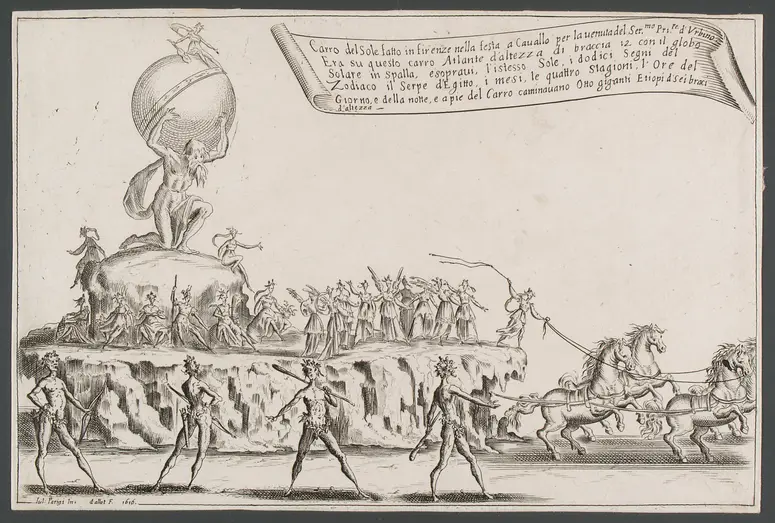 Carro del Sole fatto in firenze nella festa a Cauallo per la uenuta del Ser.mo Pri.pe d Vrbino.
Era su questo carro Atlante d'altezza di braccia 12 con il globo
Solare in Spalla, esoprauui, l'istesso Sole, i dodici Segni del
Zodiaco il Serpe d'Egitto, i mesi, le quattro Stagioni, l'Ore del
Giorno, e della notte, e a pie del Carro caminauano Otto giganti Etiopi d Sei braci
d'altezza
Iul. Parigi In. Callot F. 1616.